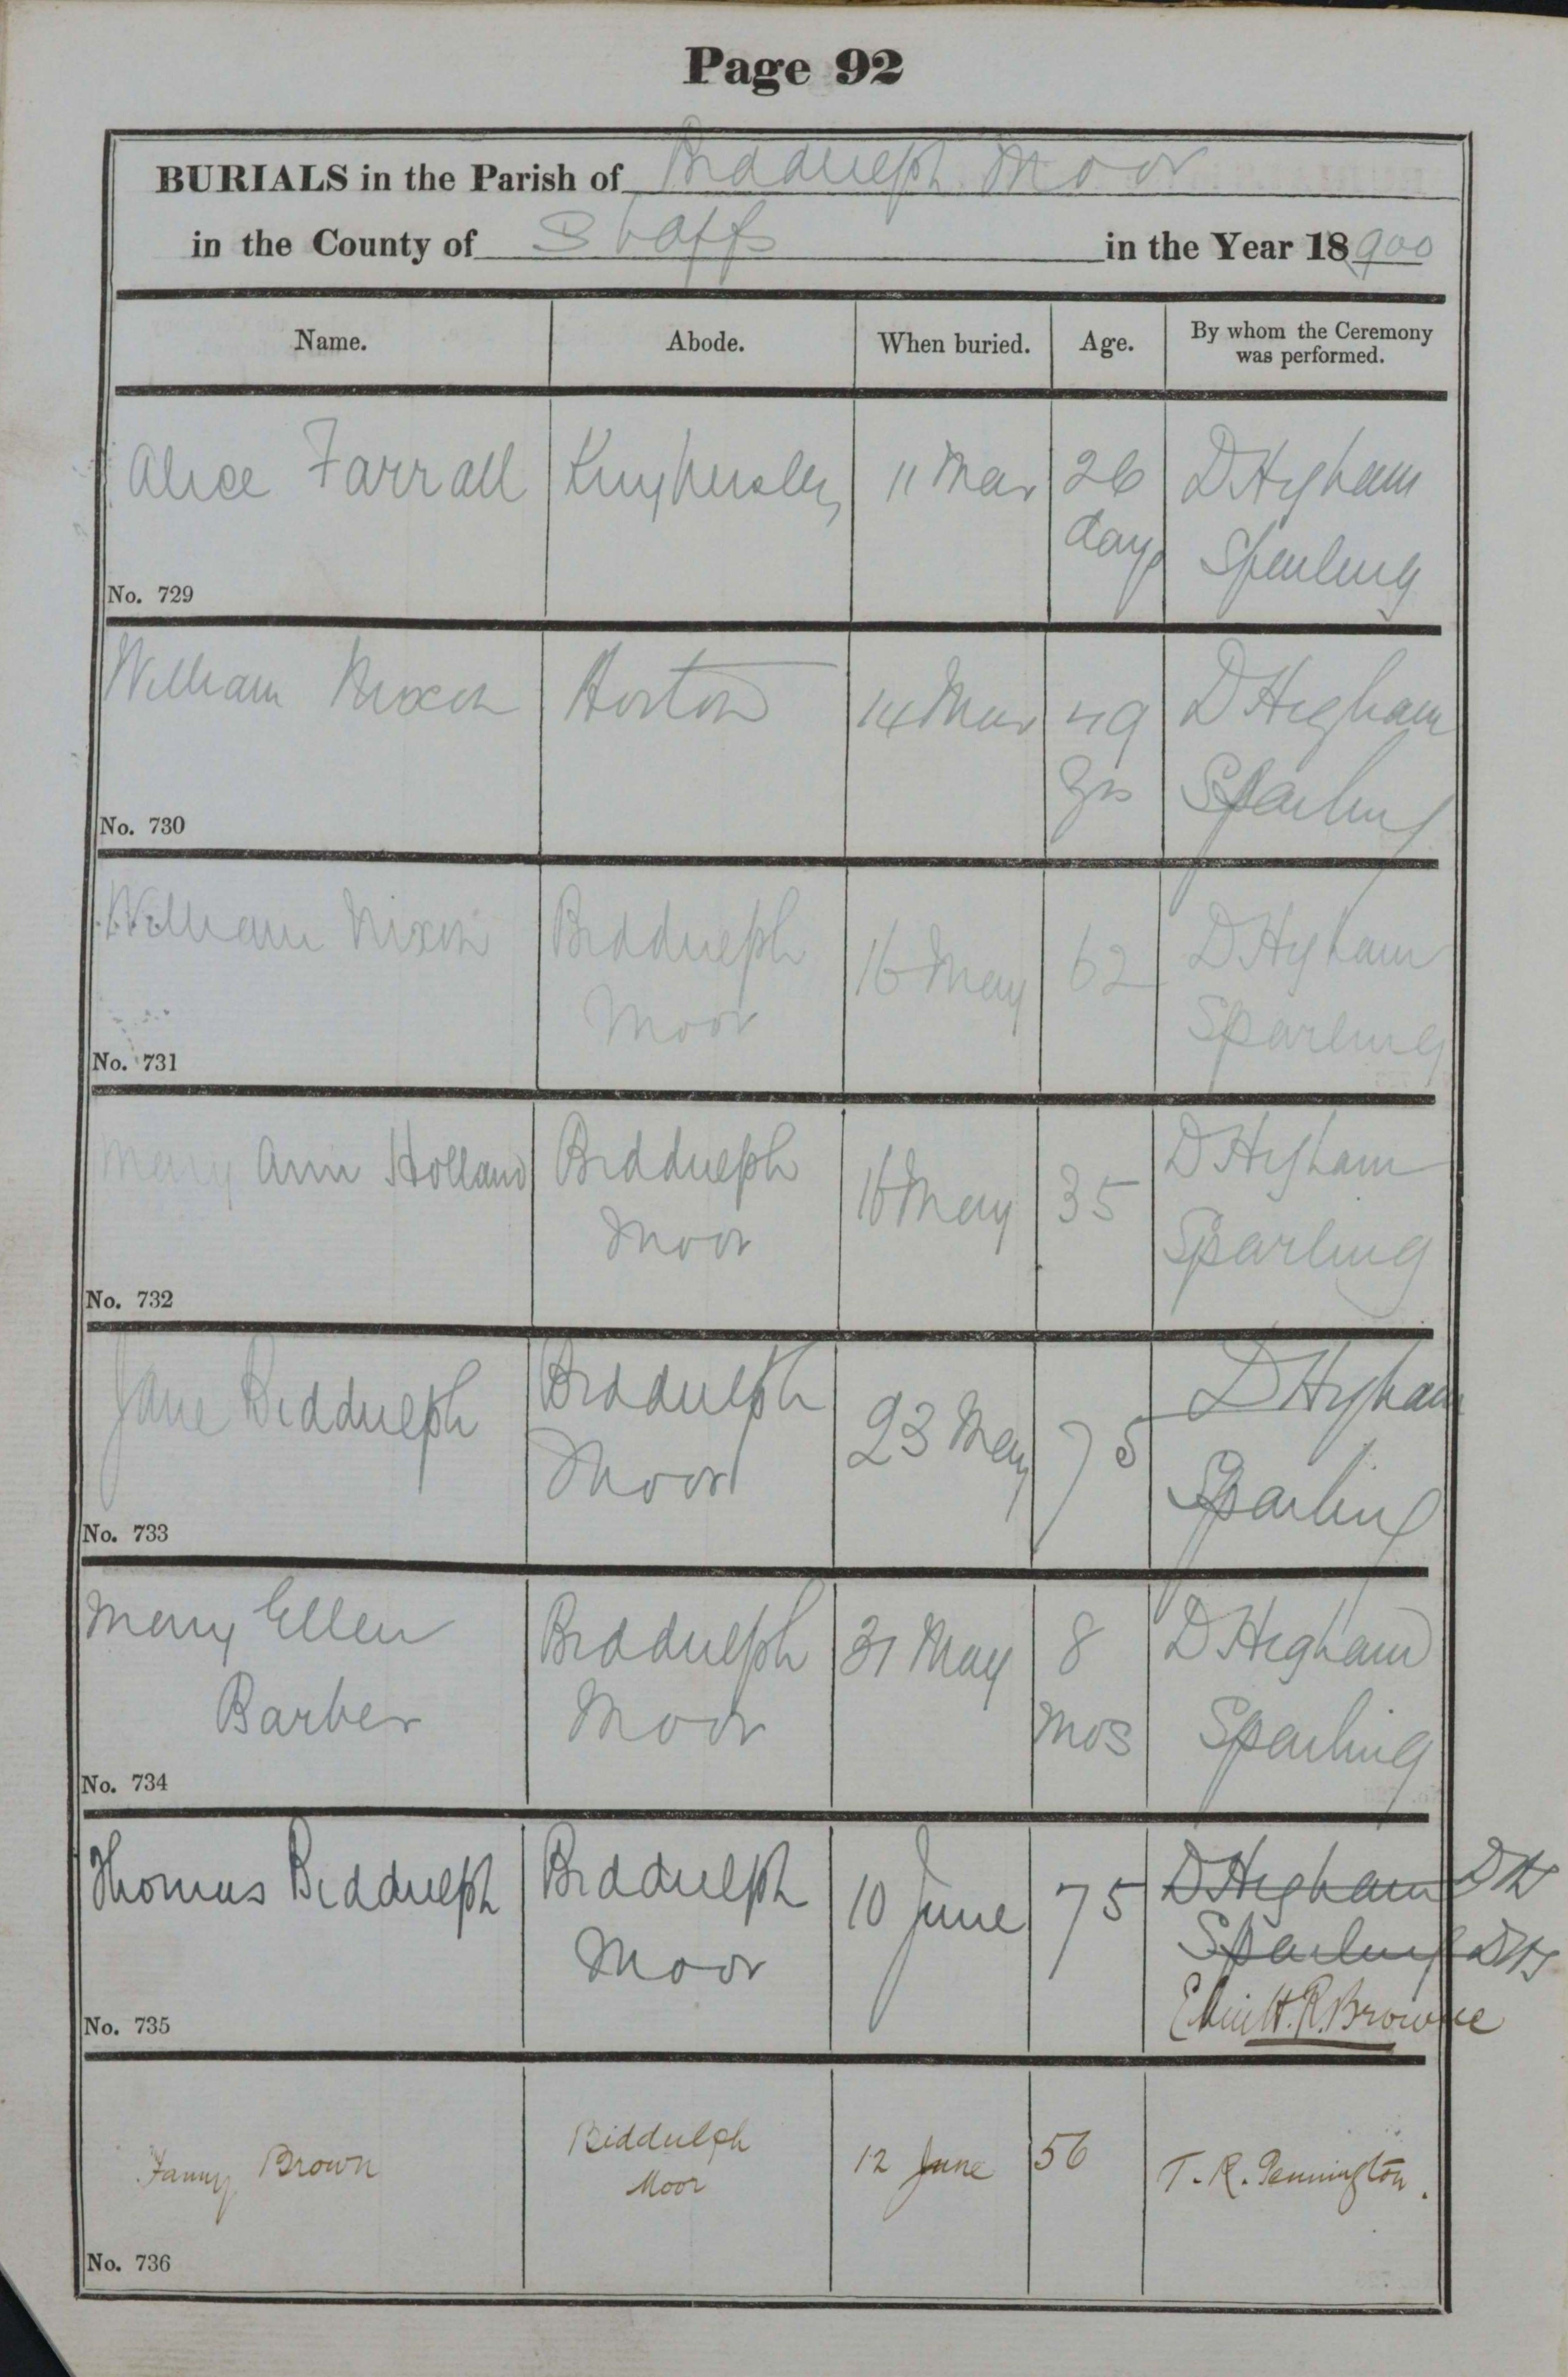 Page 92
BURIALS in the Parish of Biddulph Moor
in the County of Staffs in the Year 18 900
Name. Abode. When buried. Age. By whom the Ceremony was performed.
Alice Farrall Knypersley 11 Mar 26 D Higham
days Sparling
No. 729
William Nixon Horton 14 Mar 49 D Higham
yrs Sparling
No. 730
William Nixon Biddulph 16 May 62 D Higham
Moor Sparling
No. 731
Mary Ann Holland Biddulph 16 May 35 D Higham
Moor Sparling
No. 732
Jane Biddulph Biddulph 23 May 75 D Higham
Moor Sparling
No. 733
Mary Ellen Biddulph 31 May 8 D Higham
Barber Moor mos Sparling
No. 734
Thomas Biddulph Biddulph 10 June 75 D Higham DHS
Moor Sparling DHS
H. R. Browne
No. 735
Fanny Brown Biddulph 12 June 56 T. R. Pennington.
Moor
No. 736